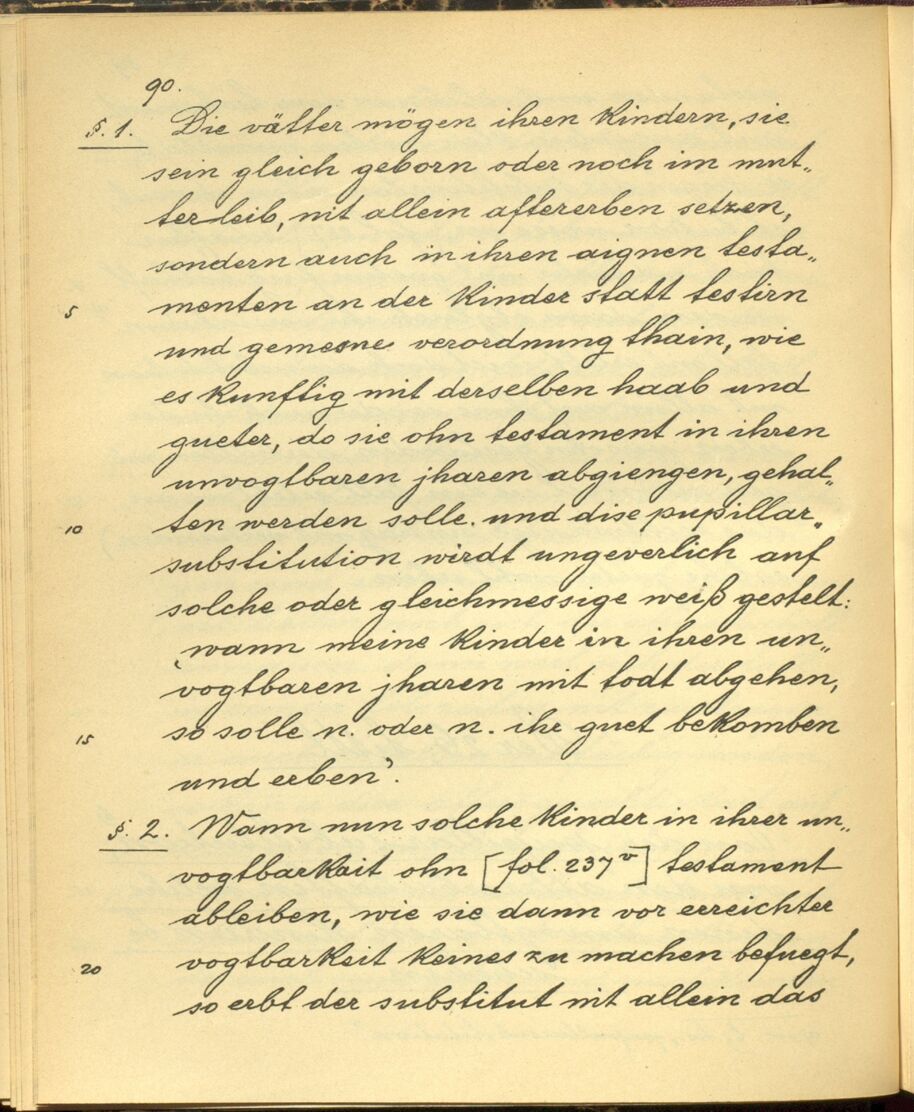 90.
§. 1. Die vätter mögen ihren kindern, sie
sein gleich geborn oder noch im mut„
ter leib, nit allein aftererben setzen,
sondern auch in ihren aignen testa„
5 menten an der kinder statt testirn
und gemesne verordnung thain, wie
es kunftig mit derselben haab und
gueter, do sie ohn testament in ihren
unvogtbaren jharen abgiengen, gehal„
10 ten werden solle. und dise pupillar„
substitution wirdt ungeverlich auf
solche oder gleichmessige weiß gestelt:
‚wann meine kinder in ihren un„
vogtbaren jharen mit todt abgehen,
15 so solle n. oder n. ihr guet bekomben
und erben’.
§. 2. Wann nun solche kinder in ihrer un„
vogtbarkait ohn [fol. 237v] testament
ableiben, wie sie dann vor erreichter
20 vogtbarkeit keines zu machen befuegt,
so erbt der substitut nit allein das